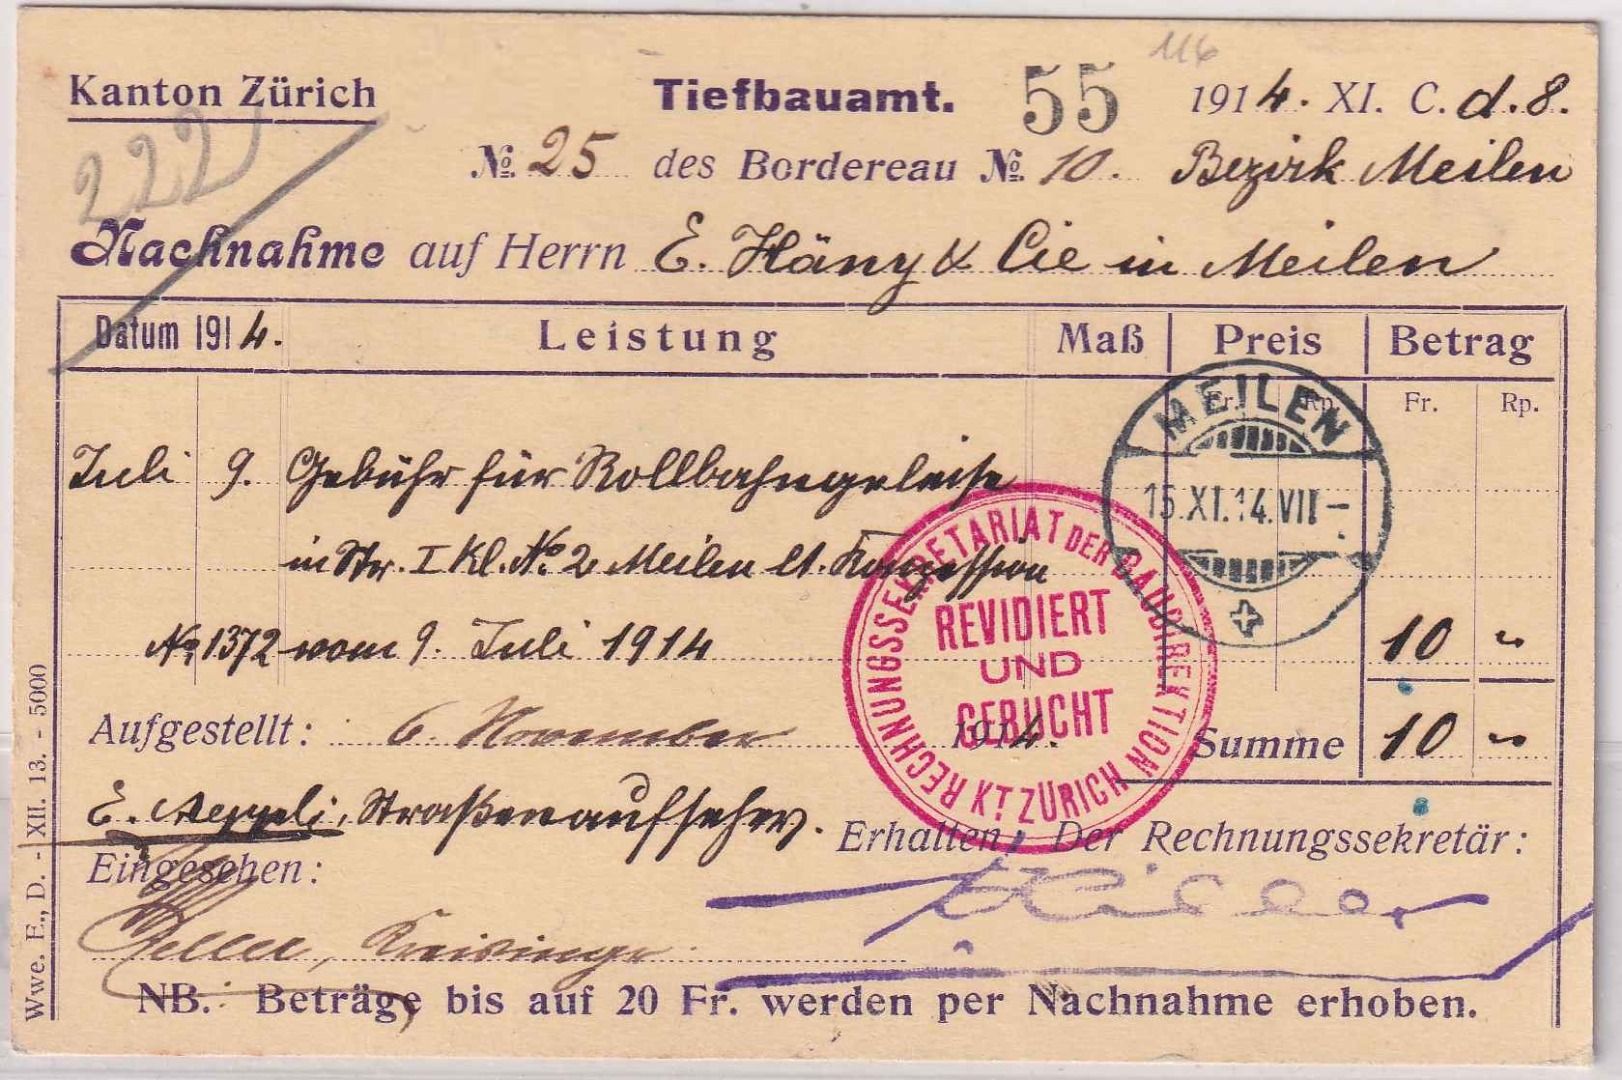 116
Kanton Zürich Tiefbauamt. 55 1914. XI. C. d. 8.
222
No. 25 des Bordereau No. 10. Bezirk Meilen
Nachnahme auf Herrn E. Häny & Cie in Meilen
Datum 1914. Leistung Maß Preis Betrag
Fr. Rp. Fr. Rp.
MEILEN
15.XI.14.VII–
Juli 9. Gebühr für Rollbahngeleise
in Str. I Kl. No. 2 Meilen lt. Konzession
No. 1372 vom 9. Juli 1914 10 "
RECHNUNGSSEKRETARIAT DER BAUDIREKTION KT. ZÜRICH
REVIDIERT
UND
GEBUCHT
Aufgestellt: 6. November 1914. Summe 10 "
E. Aeppli, Straßenaufseher.
Erhalten, Der Rechnungssekretär:
Eingesehen:
NB. Beträge bis auf 20 Fr. werden per Nachnahme erhoben.
Wwe. F., D. - XII. 13. - 5000